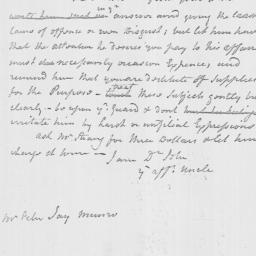 in yr.
wrote him send an answer avoid giving the least
Cause of offence or even Disgust; but let him know
that the attention he desires you pay to his affairs
must also necessarily occasion Expences, and
remind him that you are destitute of Supplies
for the Purpose - treat touch these Subjects gently but
clearly - be upon yr. Guard & dont
irritate him by harsh or unfilial Expressions
ask Mr. Strang for three Dollars & let him
charge it to me - I am Dr. Peter
yr. affte. Uncle
Mr Peter Jay Munro